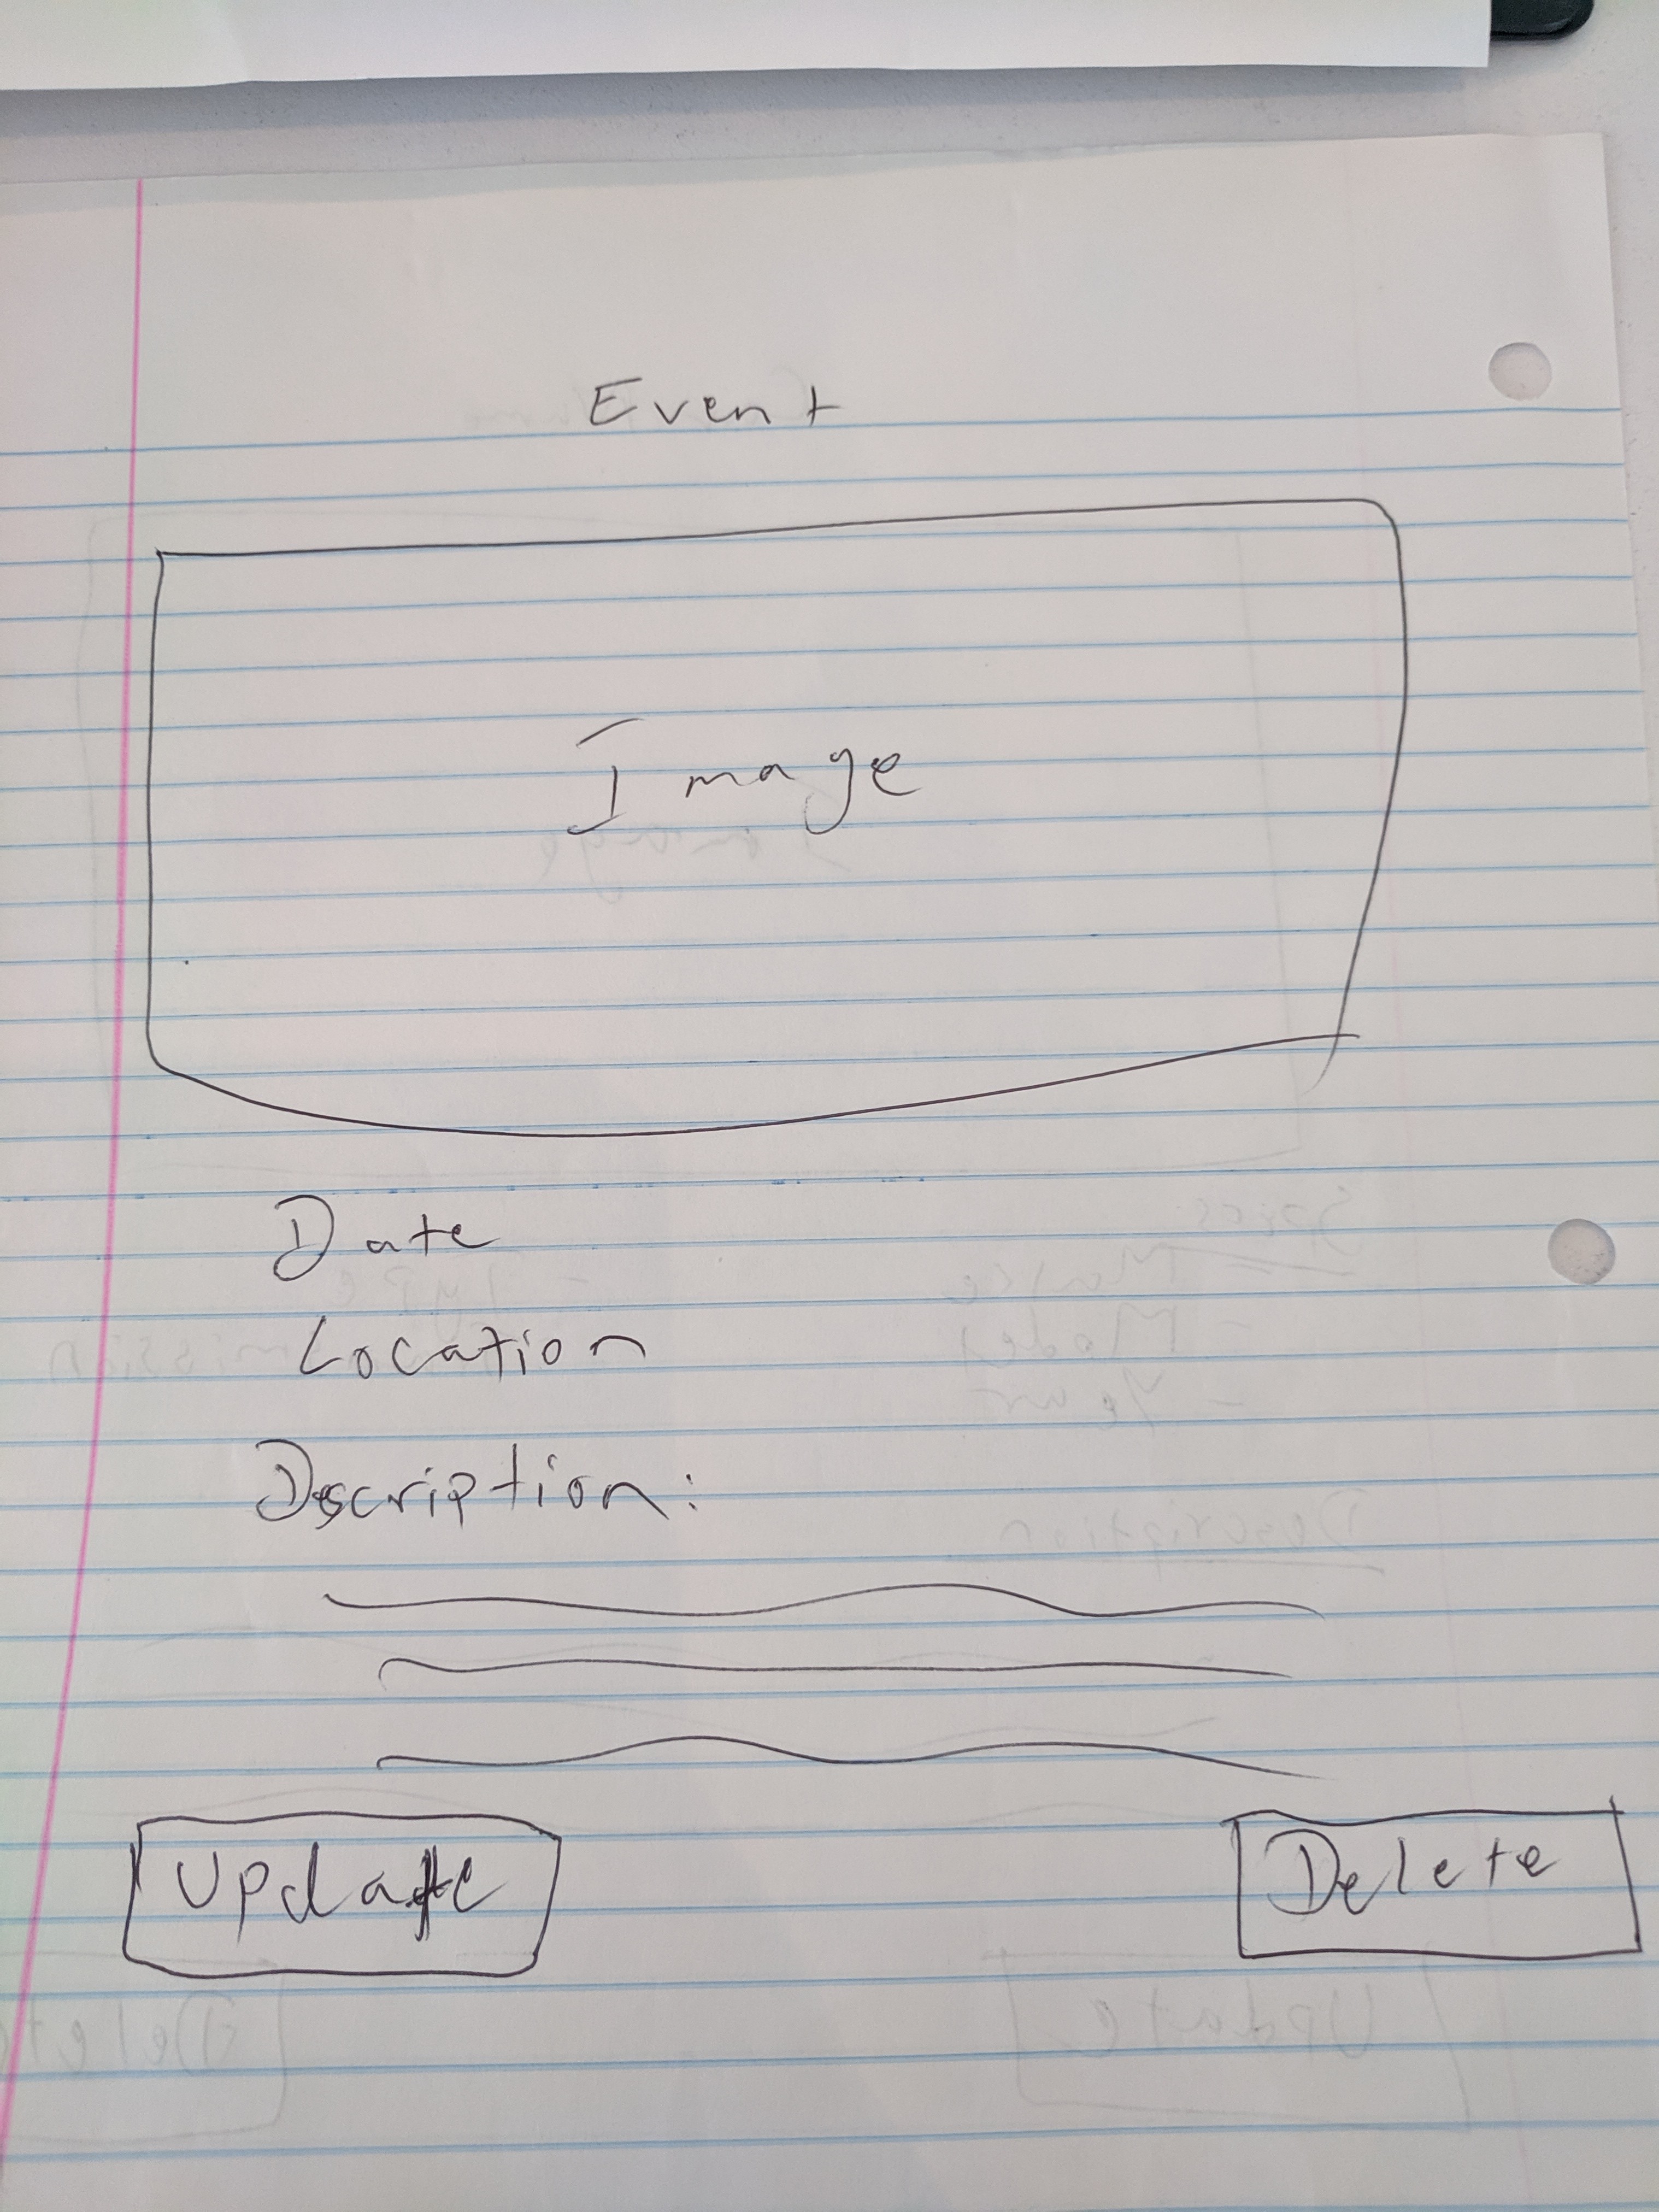 Event
Image
Date
Location
Description:
Update
Delete